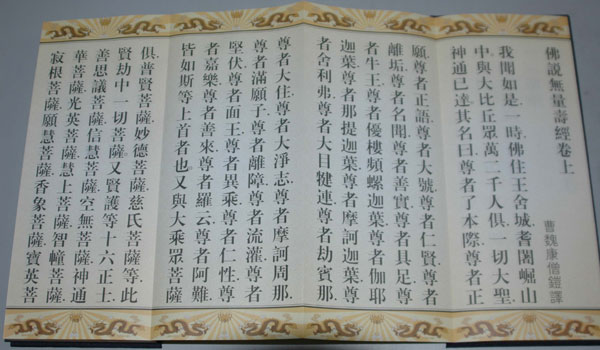 佛說無量壽經卷上
曹魏康僧鎧譯
我聞如是一時佛住王舍城耆闍崛山
中與大比丘眾萬二千人俱一切大聖
神通已達其名曰尊者了本際尊者正
願尊者正語尊者大號尊者仁賢尊者
離垢尊者名聞尊者善實尊者具足尊
者牛王尊者優樓頻螺迦葉尊者伽耶
迦葉尊者那提迦葉尊者摩訶迦葉尊
者舍利弗尊者大目犍連尊者劫賓那
尊者大住尊者大淨志尊者摩訶周那
尊者滿願子尊者離障尊者流灌尊者
堅伏尊者面王尊者異乘尊者仁性尊
者嘉樂尊者善來尊者羅云尊者阿難
皆如斯等上首者也又與大乘眾菩薩
俱普賢菩薩妙德菩薩慈氏菩薩等此
賢劫中一切菩薩又賢護等十六正士
善思議菩薩信慧菩薩空無菩薩神通
華菩薩光英菩薩慧上菩薩智幢菩薩
寂根菩薩願慧菩薩香象菩薩寶英菩